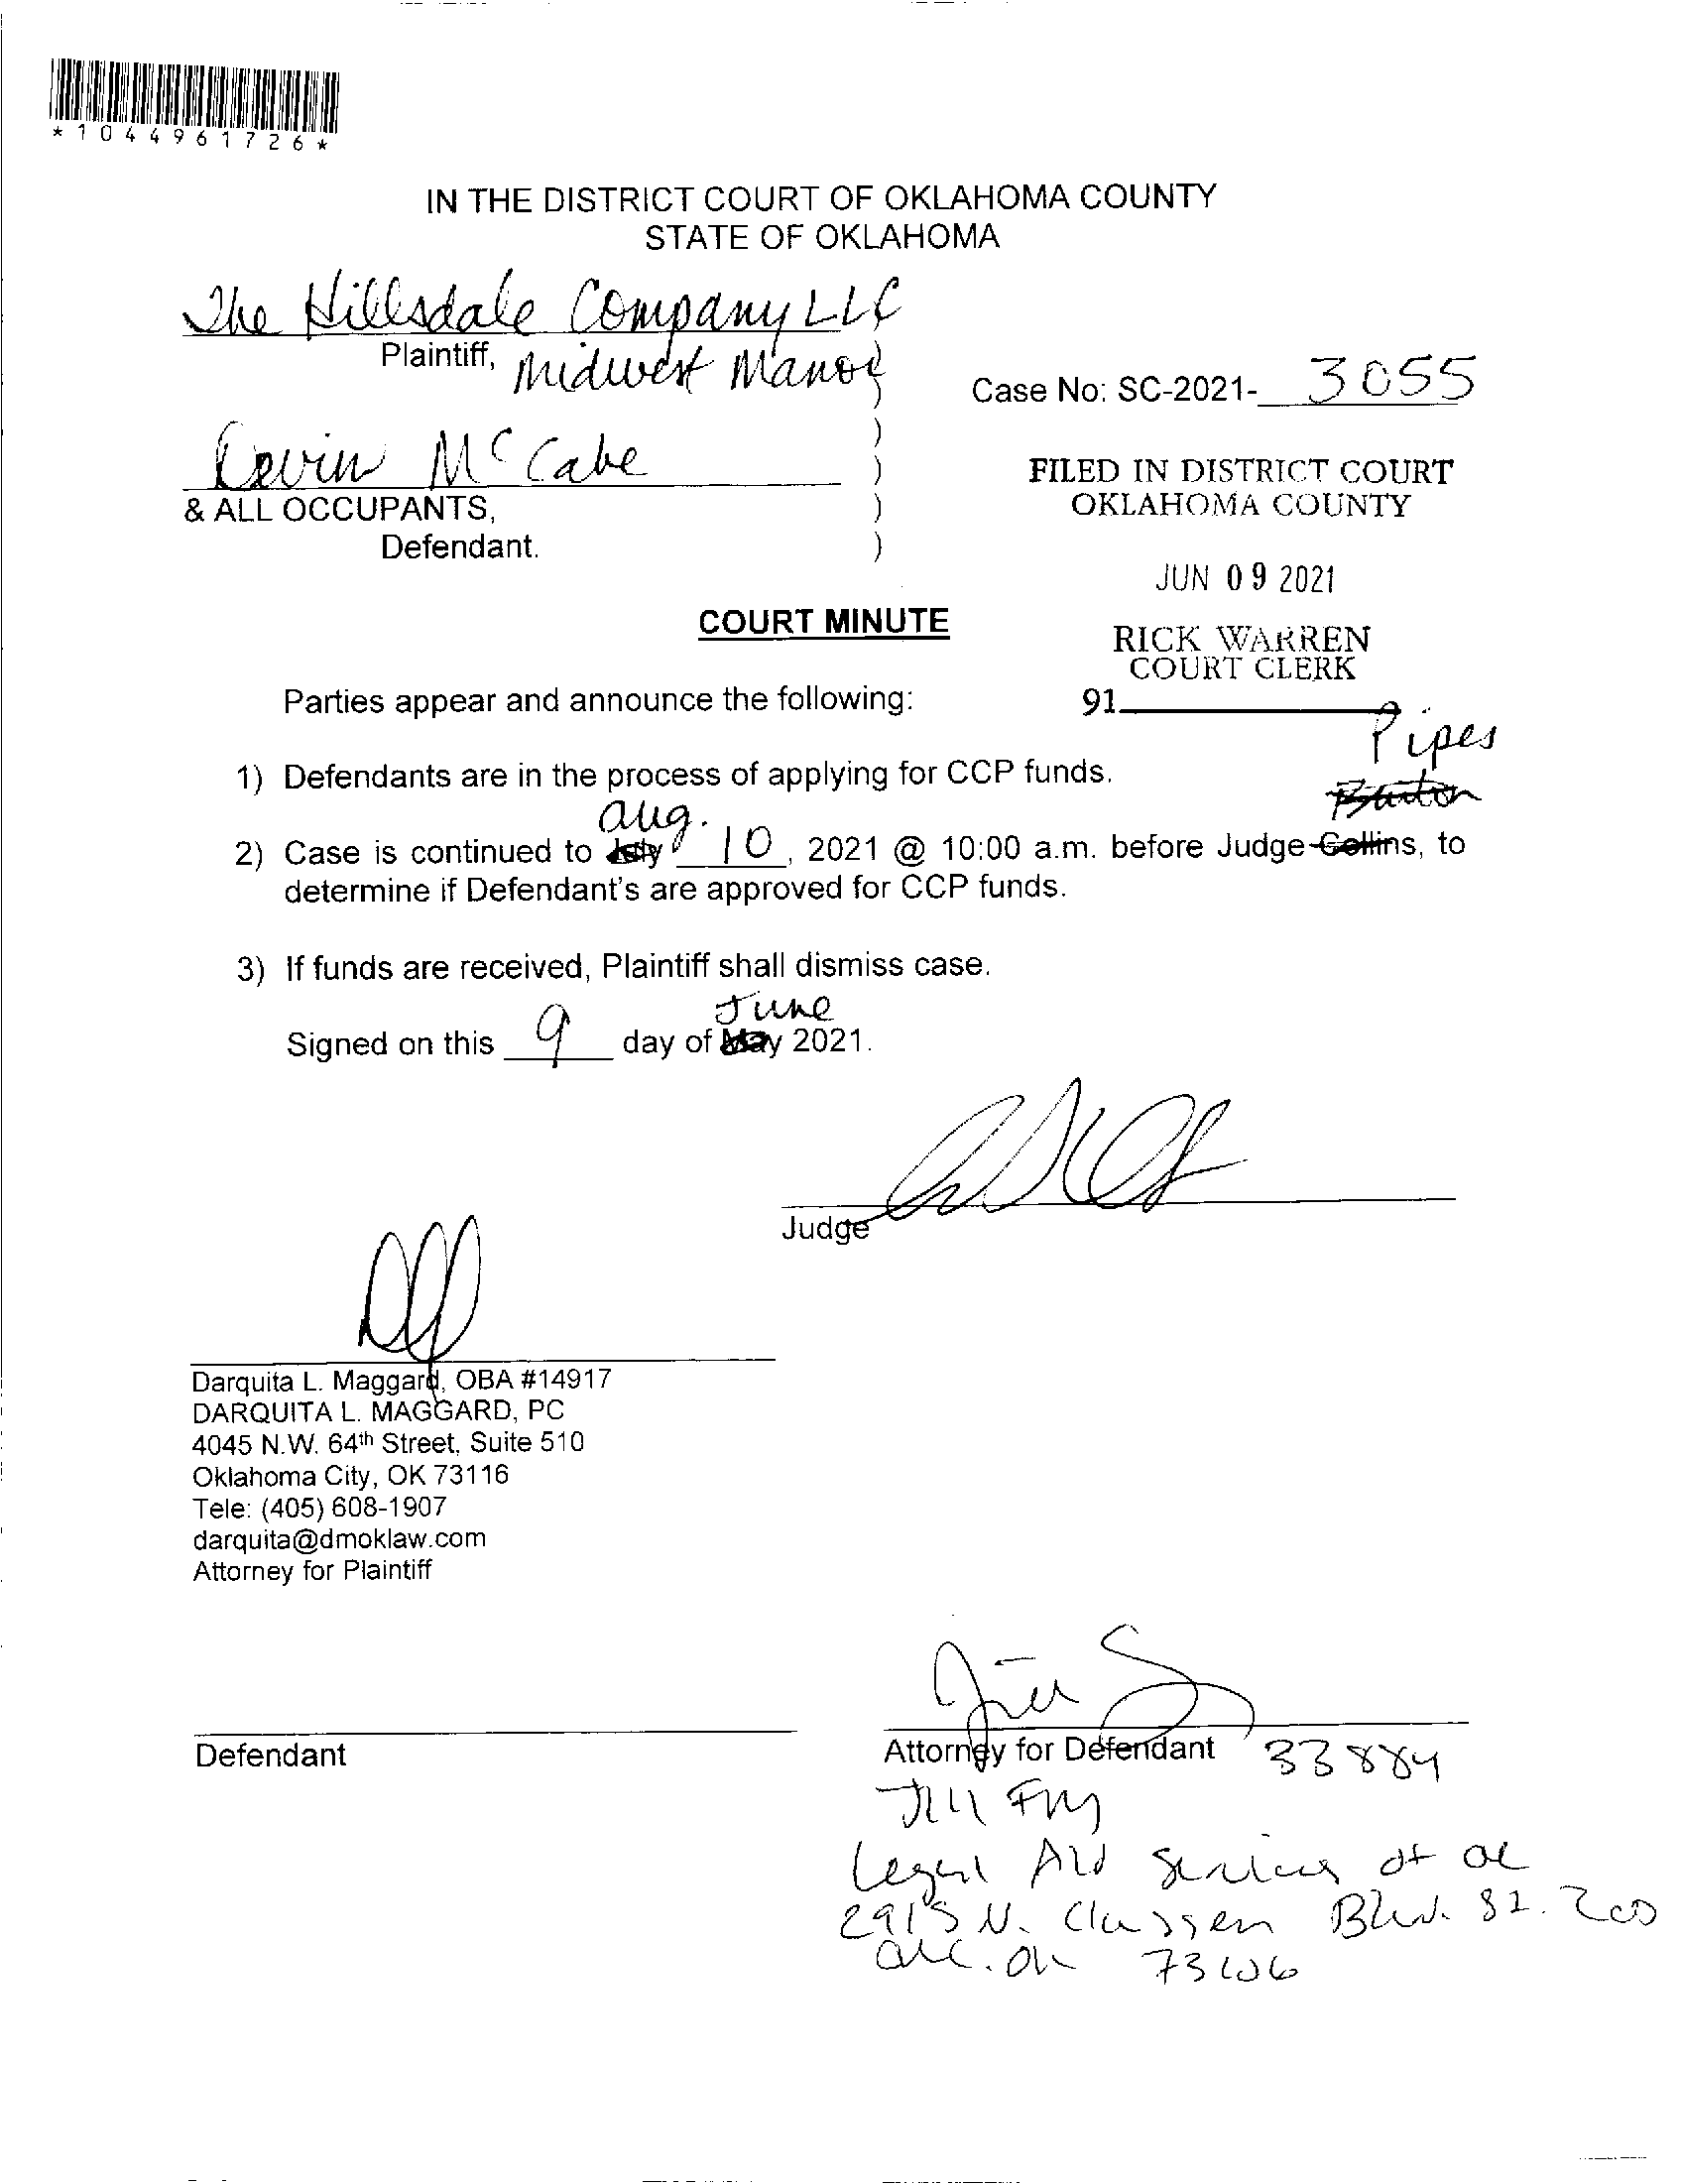 *1044961726*
IN THE DISTRICT COURT OF OKLAHOMA COUNTY
STATE OF OKLAHOMA
The Hillsdale Company LLC
Plaintiff, Midwest Manor )
)
Case No: SC-2021- 3055
)
Kevin McCabe )
& ALL OCCUPANTS, )
Defendant. )
FILED IN DISTRICT COURT
OKLAHOMA COUNTY
JUN 09 2021
RICK WARREN
COURT CLERK
91
COURT MINUTE
Parties appear and announce the following:
1) Defendants are in the process of applying for CCP funds.
Pipes
Aug.
2) Case is continued to July 10, 2021 @ 10:00 a.m. before Judge Collins, to
determine if Defendant's are approved for CCP funds.
3) If funds are received, Plaintiff shall dismiss case.
June
Signed on this 9 day of May 2021.
Judge
Darquita L. Maggard, OBA #14917
DARQUITA L. MAGGARD, PC
4045 N.W. 64th Street, Suite 510
Oklahoma City, OK 73116
Tele: (405) 608-1907
darquita@dmoklaw.com
Attorney for Plaintiff
Defendant
Attorney for Defendant 33884
Jill Fry
Legal Aid Services of OK
2915 N. Classen Blvd. 200
OKC, OK 73106